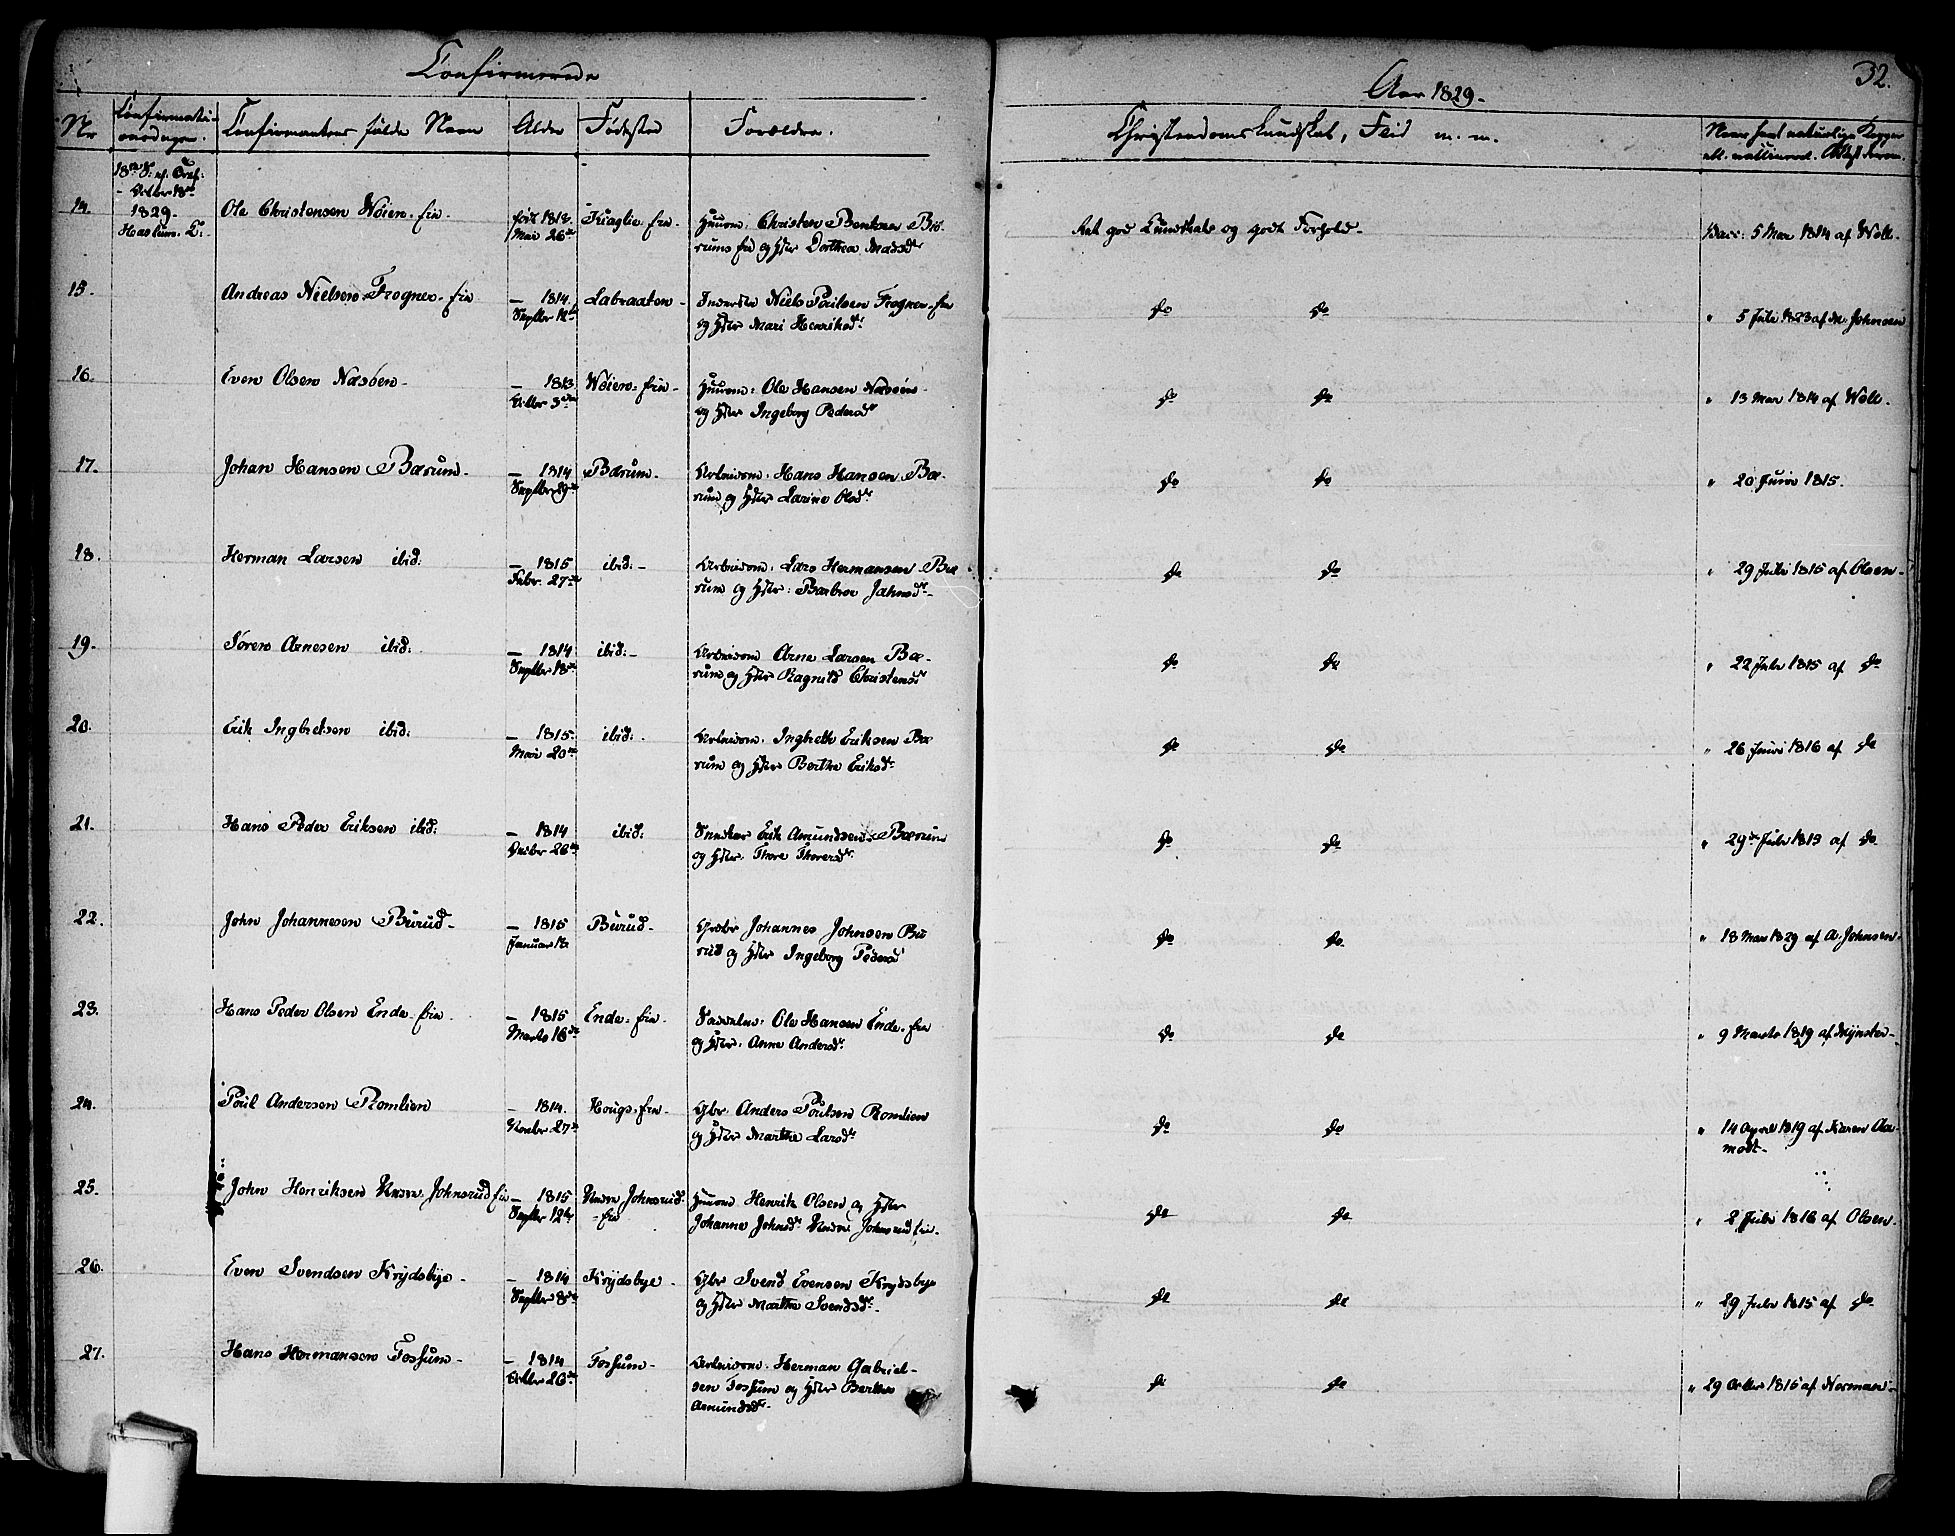 Confirmerede
Aar 1829.
32.
Nr
Confirmati-
onsdagen.
Confirmantens fulde Navn
Alder
Fødested
Forældre.
Christendomskundskab, Flid m. m.
Naar havt naturlige Kopper
ell. vaccineret. Attest derom.
18de S. ef. Tref:
- Octbr 18de
1829
Haslum. K:
14.
Ole Christensen Wøien-
født 1813.
Mai 26de
Christen Bentsen Bæ-
rums og Hstr Dorthea Madsdr
Ret god Kundskab og godt Forhold.
Vacc: 5 Mai 1814 af Woll.
15.
Andreas Nielsen Frogner-
- 1814.
Septbr
Labraaten -
Inderster Niels Poulsen Frogner-
og Hstr Mari Henriksdr
do do
" 5 Juli 1823 af M. Johnsen
16.
Even Olsen Næsben-
- 1813
Octbr 3die
Wøien-
Huusm: Ole Hansen Næsben-
og Hstr Ingeborg Pedersdr
do do
" 13 Mai 1814 af Woll.
17.
Johan Hansen Bærum-
- 1814
Septbr 29de
Bærum-
Arbeidsm: Hans Hansen Bæ-
rum og Hstr Larine Olsdr
do do
" 20 Juni 1815.
18.
Herman Larsen ibid:
- 1815
Febr. 27de
ibid: -
Arbeidsm: Lars Hermansen Bæ
rum og Hstr: Barbroe Jahnsdr-
do do
" 29 Juli 1815 af Olsen-
19.
Søren Arnesen ibid:
- 1814
Septbr 18de
ibid: -
Arbeidsm Arne Larsen Bæ-
rum og Hstr Ragnild Christensdr
do do
" 22 Juli 1815 af do
20.
Erik Ingbretsen ibid:
- 1815
Mai 20de
ibid: -
Arbeidsm: Ingbreth Eriksen Bæ
rum og Hstr Berthe Eriksdr
do do
" 26 Juni 1816 af do
21.
Hans Peder Eriksen ibid:
- 1814
ibid:
Snedker Erik Amundsen Bærum
og Hstr. Thore Thoresdr
do do
" 29de Juli 1815 af do
22.
John Johannesen Burud-
- 1815
Januar
Burud-
Johannes Johnsen Bu
rud og Hstr Ingeborg Pedersd
do do
" 18 Mai 1829 af A. Johnsen-
23.
Hans Peder Olsen Ende-
- 1815
Marts 16de
Ende-
Ole Hansen Ende-
og Hstr. Anne Andersdr
do do
" 9 Marts 1819 af Mynster-
24.
Poul Andersen Romlien
- 1814.
Novbr 27de
Hougs-
Gbr Anders Poulsen Romlien
og Hstr Marthe Larsdr
do do
" 14 April 1819 af Karen Aa-
modt-
25.
John Henriksen Nedre Johnsrud
- 1815
Septbr 12te
Nedre Johnsrud-
Huusm Henrik Olsen og Hstr
Johanne Johnsdr Nedre Johnsrud
do do
" 2 Juli 1816 af Olsen.
26.
Even Svendsen Krydsbye-
- 1814
Septbr 8de
Krydsbye-
Gbr Svend Evensen Krydsbye
og Hstr Marthe Svendsdr.
do do
" 29 Juli 1815 af do
27.
Hans Hermansen Fossum-
- 1814
Octbr 26de
Fossum-
Arbeidsm: Herman Gabriel-
sen Fossum og Hstr Berthe
Amundsdr-
do do
" 29 Octbr 1816 af Norman-